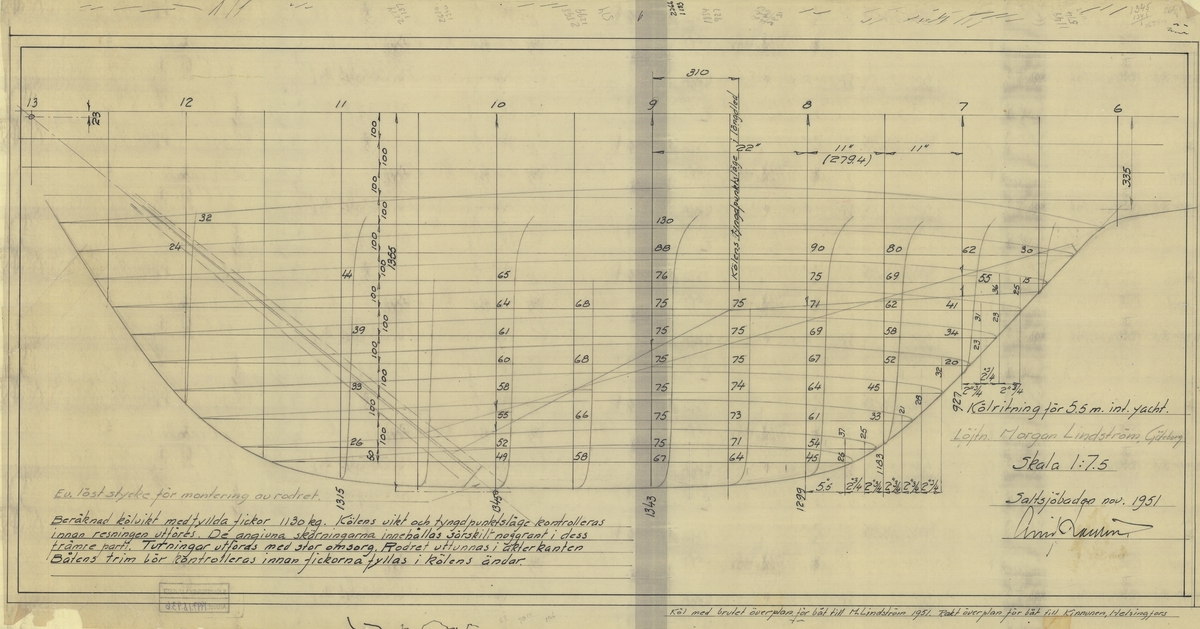 310
13 12 11 10 9 8 7 6
23
22" 11" 11"
(279.4)
335
Kölens tyngdpunktsläge i längdled
100 100 100 100 100 100 100 100 100 100 100 100 50
1365
32
24
130
88 90 80 62 30
44 65 76 75 69 55 15
64 68 75 75 71 62 41
39 61 75 75 69 58 34
60 68 75 75 67 52 20
33 58 75 74 64 45
55 66 75 73 61 33
26 52 75 71 54
49 58 67 64 45
36 25
31 29
23
32
28
21
37 25
26
1315
1343
1299
1183
927
Kölritning för 5.5 m. int. yacht.
Löjtn. Morgan Lindström, Göteborg
Skala 1:7.5
Saltsjöbaden nov. 1951
Ev. löst stycke för montering av rodret.
Beräknad kölvikt med fyllda fickor 1130 kg. Kölens vikt och tyngdpunktsläge kontrolleras
innan resningen utföres. De angivna skärningarna innehållas särskilt noggrant i dess
främre parti. Turningar utföras med stor omsorg. Rodret uttunnas i akterkanten
Båtens trim bör kontrolleras innan fickorna fyllas i kölens ändar.
Köl med brutet överplan för båt till M. Lindström 1951. Rakt överplan för båt till Kinnunen, Helsingfors